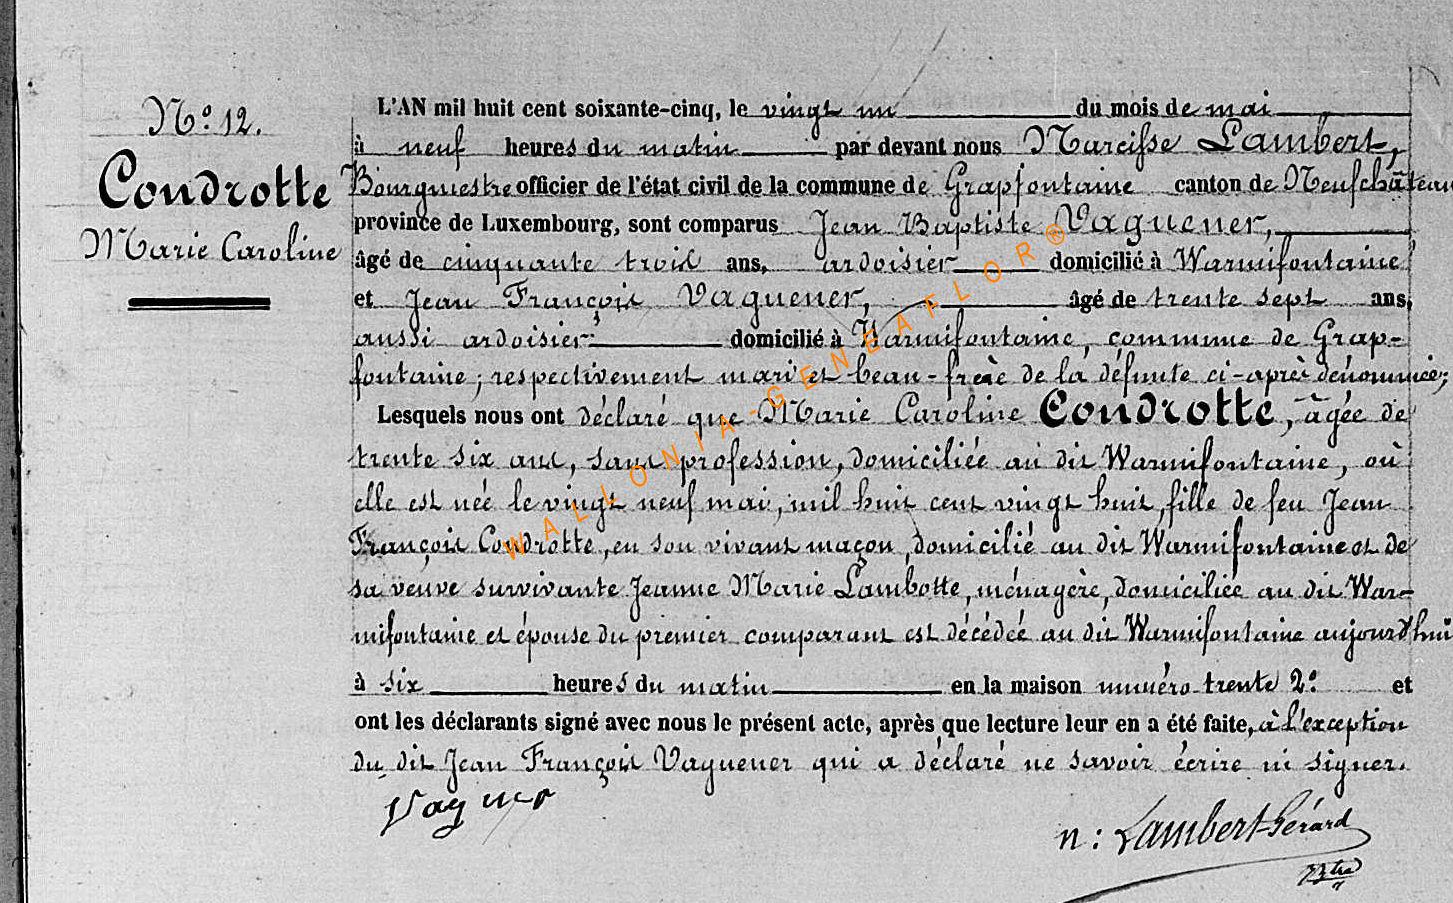 N.° 12.
Condrotte
Marie Caroline
L'AN mil huit cent soixante-cinq, le vingt un du mois de mai
à neuf heures du matin par devant nous Narcisse Lambert,
Bourgmestre officier de l'état civil de la commune de Grapfontaine canton de Neufchâteau
province de Luxembourg, sont comparus Jean Baptiste Vaguener,
âgé de cinquante trois ans, ardoisier domicilié à Warmifontaine
et Jean François Vaguener, âgé de trente sept ans,
aussi ardoisier domicilié à Warmifontaine, commune de Grap-
fontaine; respectivement mari et beau-frère de la défunte ci-après dénommée;
Lesquels nous ont déclaré que Marie Caroline Condrotte, âgée de
trente six ans, sans profession, domiciliée au dit Warmifontaine, où
elle est née le vingt neuf mai, mil huit cent vingt huit, fille de feu Jean
François Condrotte, en son vivant maçon, domicilié au dit Warmifontaine et de
sa veuve survivante Jeanne Marie Lambotte, ménagère, domiciliée au dit War-
mifontaine et épouse du premier comparant est décédée au dit Warmifontaine aujourd'hui
à six heures du matin en la maison numéro trente 2° et
ont les déclarants signé avec nous le présent acte, après que lecture leur en a été faite, à l'exception
du dit Jean François Vaguener qui a déclaré ne savoir écrire ni signer.
Vagner
n: Lambert-Gérard
WALLONIA-GENEAFLOR®